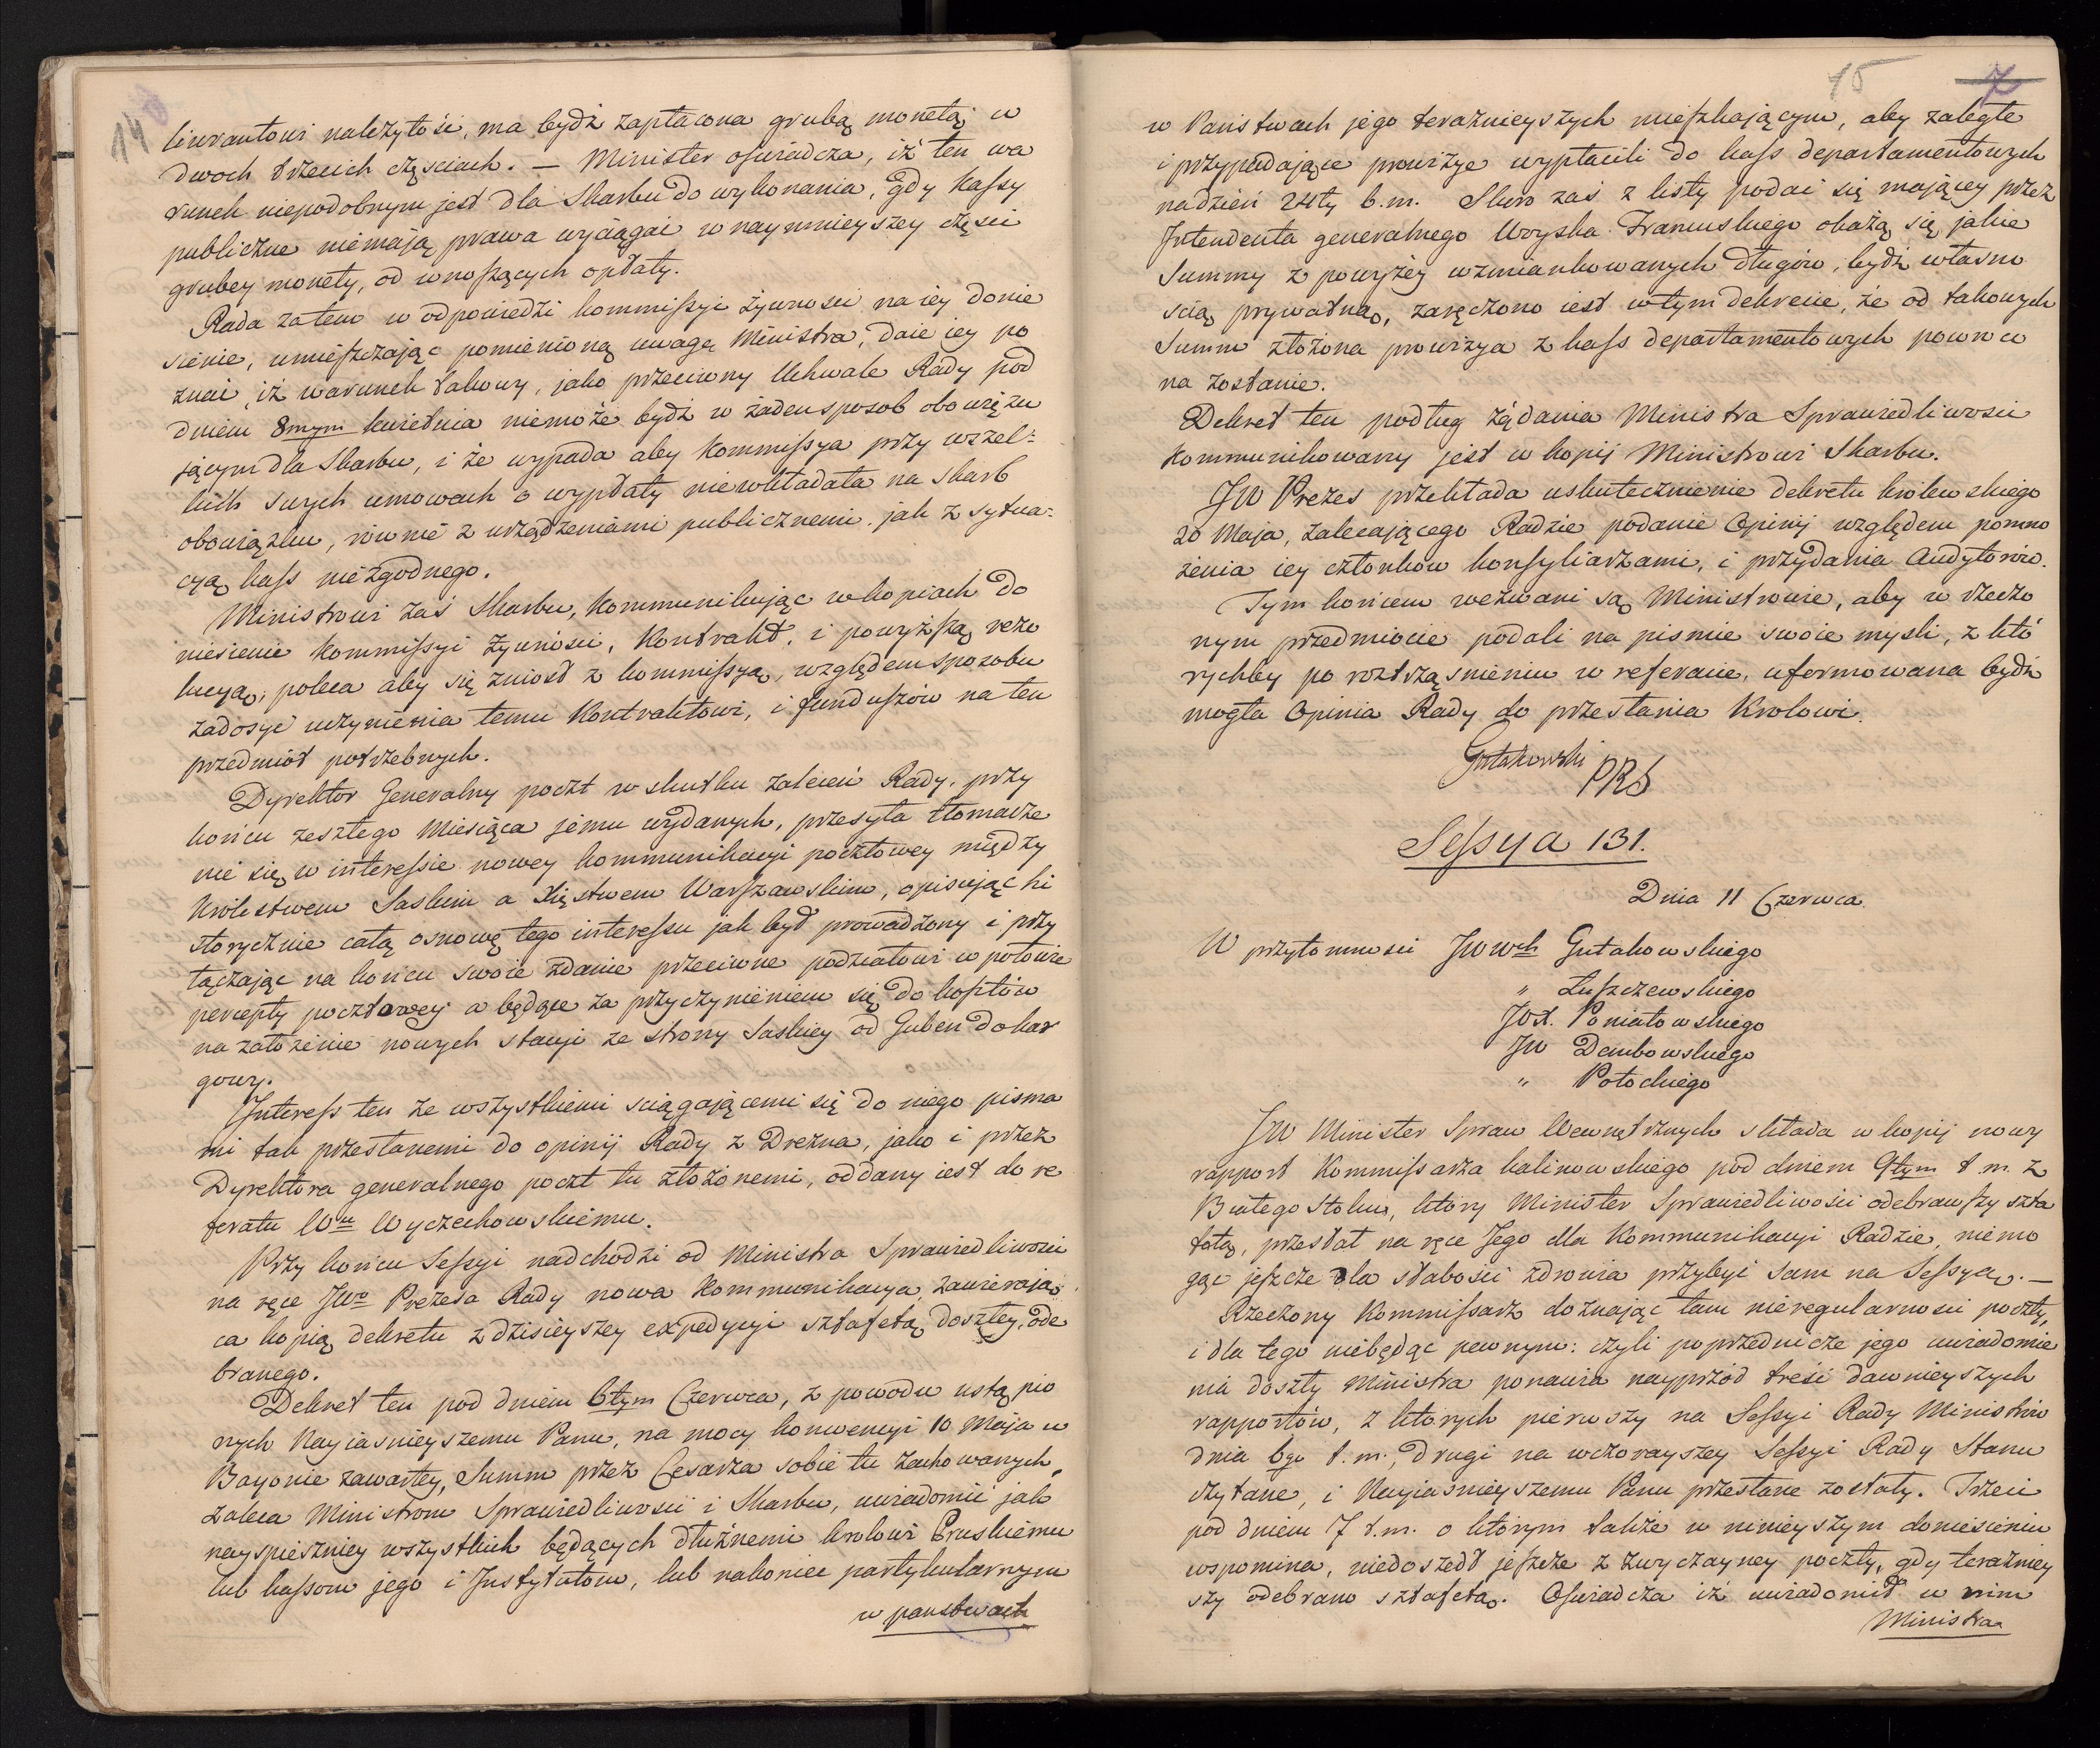 14
liwrantowi należytości, ma bydź zapłacona grubą monetą w
dwoch trzecich częsciach. — Minister oświadcza, iż ten wa
runek niepodobnym jest dla Skarbu do wykonania, gdy Kassy
publiczne niemają prawa wyciągać w naymnieyszey części
grubey monety, od wnoszących opłaty.
Rada zatem w odpowiedzi kommissyi żywności na iey donie
sienie, umieszczając pomienioną uwagę Ministra, daie iey po
znać, iż warunek takowy, jako przeciwny Uchwale Rady pod
dniem 8mym kwietnia niemoże bydź w żaden sposob obowięzu
jącym dla Skarbu, i że wypada aby Kommissya przy wszel=
kich swych umowach o wypłaty niewkładała na skarb
obowiązku, równie z urządzeniami publicznemi jak z sytua=
cyą kass niezgodnego.
Ministrowi zaś Skarbu, kommunikując w kopiach do
niesienie Kommissyi Żywności, Kontrakt, i powyższą rezo
lucyą, poleca aby się zniosł z kommissyą, względem sposobu
zadosyć uczynienia temu Kontraktowi, i funduszów na ten
przedmiot potrzebnych.
Dyrektor Generalny poczt w skutku zaleceń Rady przy
końcu zeszłego Miesiąca jemu wydanych, przesyła tłomacze
nie się w interessie nowey kommunikacyi pocztowey między
Królestwem Saskim a Xięstwem Warszawskim, opisując hi
storycznie całą osnowę tego interessu jak był prowadzony i przy
łączając na końcu swoie zdanie przeciwne podziałowi w połowie
percepty pocztowey a będące za przyczynieniem się do kosztów
na założenie nowych stacyi ze strony Saskiey od Guben do Kar
gowy.
Interess ten ze wszystkiemi sciągającemi się do niego pisma
mi tak przesłanemi do opinij Rady z Drezna, jako i przez
Dyrektora generalnego poczt tu złożonemi, oddany iest do re
feratu Wmu Wyczechowskiemu.
Przy końcu Sessyi nadchodzi od Ministra Sprawiedliwości
na ręce JWo Prezesa Rady nowa Kommunikacya, zawierają
ca kopią dekretu z dzisieyszey expedycyi sztafetą doszłey, ode
branego.
Dekret ten pod dniem 6tym Czerwca, z powodu ustąpio
nych Nayjasnieyszemu Panu, na mocy konwencyi 10 Maja w
Bayonie zawartey, Summ przez Cesarza sobie tu zachowanych,
zaleca Ministrom Sprawiedliwości i Skarbu, uwiadomić jak
nayspieszniey wszystkich będących dłużnemi krolowi Pruskiemu
lub kassom jego i Instytutom, lub nakoniec partykularnym
w panstwach
15
7
w Panstwach jego teraźnieyszych mieszkającym, aby zaległe
i przypadające prowizye wypłacili do kass departamentowych
nadzień 24ty b.m. Skoro zaś z listy podać się mającey przez
Intendenta generalnego Woyska Francuskiego okażą się jakie
Summy z powyżey wzmiankowanych długów, bydź własno
scią prywatną, zaręczono iest w tym dekrecie, że od takowych
Summ złożona prowizya z kass departamentowych powroco
na zostanie.
Dekret ten podług żądania Ministra Sprawiedliwości
kommunikowany jest w kopij Ministrowi Skarbu.
JW Prezes przekłada uskutecznienie dekretu krolewskiego
20 Maja, zalecającego Radzie podanie Opinij względem pomno
żenia iey członkow konsyliarzami, i przydania Audytorów.
Tym końcem wezwani są Ministrowie, aby w rzeczo
nym przedmiocie podali na pismie swoie mysli, z któ
rychby po roztrząsnieniu w referacie, uformowana bydź
mogła Opinia Rady do przesłania Krolowi.
Gutakowski
PRS
Sessya 131.
Dnia 11 Czerwca
W przytomnosci JWWch Gutakowskiego
" Łuszczewskiego
JOX. Poniatowskiego
JW Dembowskiego
" Potockiego
JW Minister Spraw Wewnętrznych składa w kopij nowy
rapport Kommissarza kalinowskiego pod dniem 9tym t.m. z
Białego Stoku, ktory Minister Sprawiedliwości odebrawszy szta
fetą, przesłał na ręce Jego dla Kommunikacyi Radzie, niemo
gąc jeszcze dla słabości zdrowia przybyć sam na Sessyą. —
Rzeczony Kommissarz doznając tam nieregularnosci poczty,
i dla tego niebędąc pewnym: czyli poprzednicze jego uwiadomie
nia doszły Ministra ponawia nayprzód treść dawnieyszych
rapportów, z ktorych pierwszy na Sessyi Rady Ministrów
dnia 6go t.m., drugi na wczorayszey Sessyi Rady Stanu
czytane, i Nayjasnieyszemu Panu przesłane zostały. Trzeci
pod dniem 7 t.m. o którym także w ninieyszym doniesieniu
wspomina, niedoszedł jeszcze z zwyczayney poczty, gdy teraźniey
szy odebrano sztafetą. Oświadcza iż uwiadomił w nim
Ministra